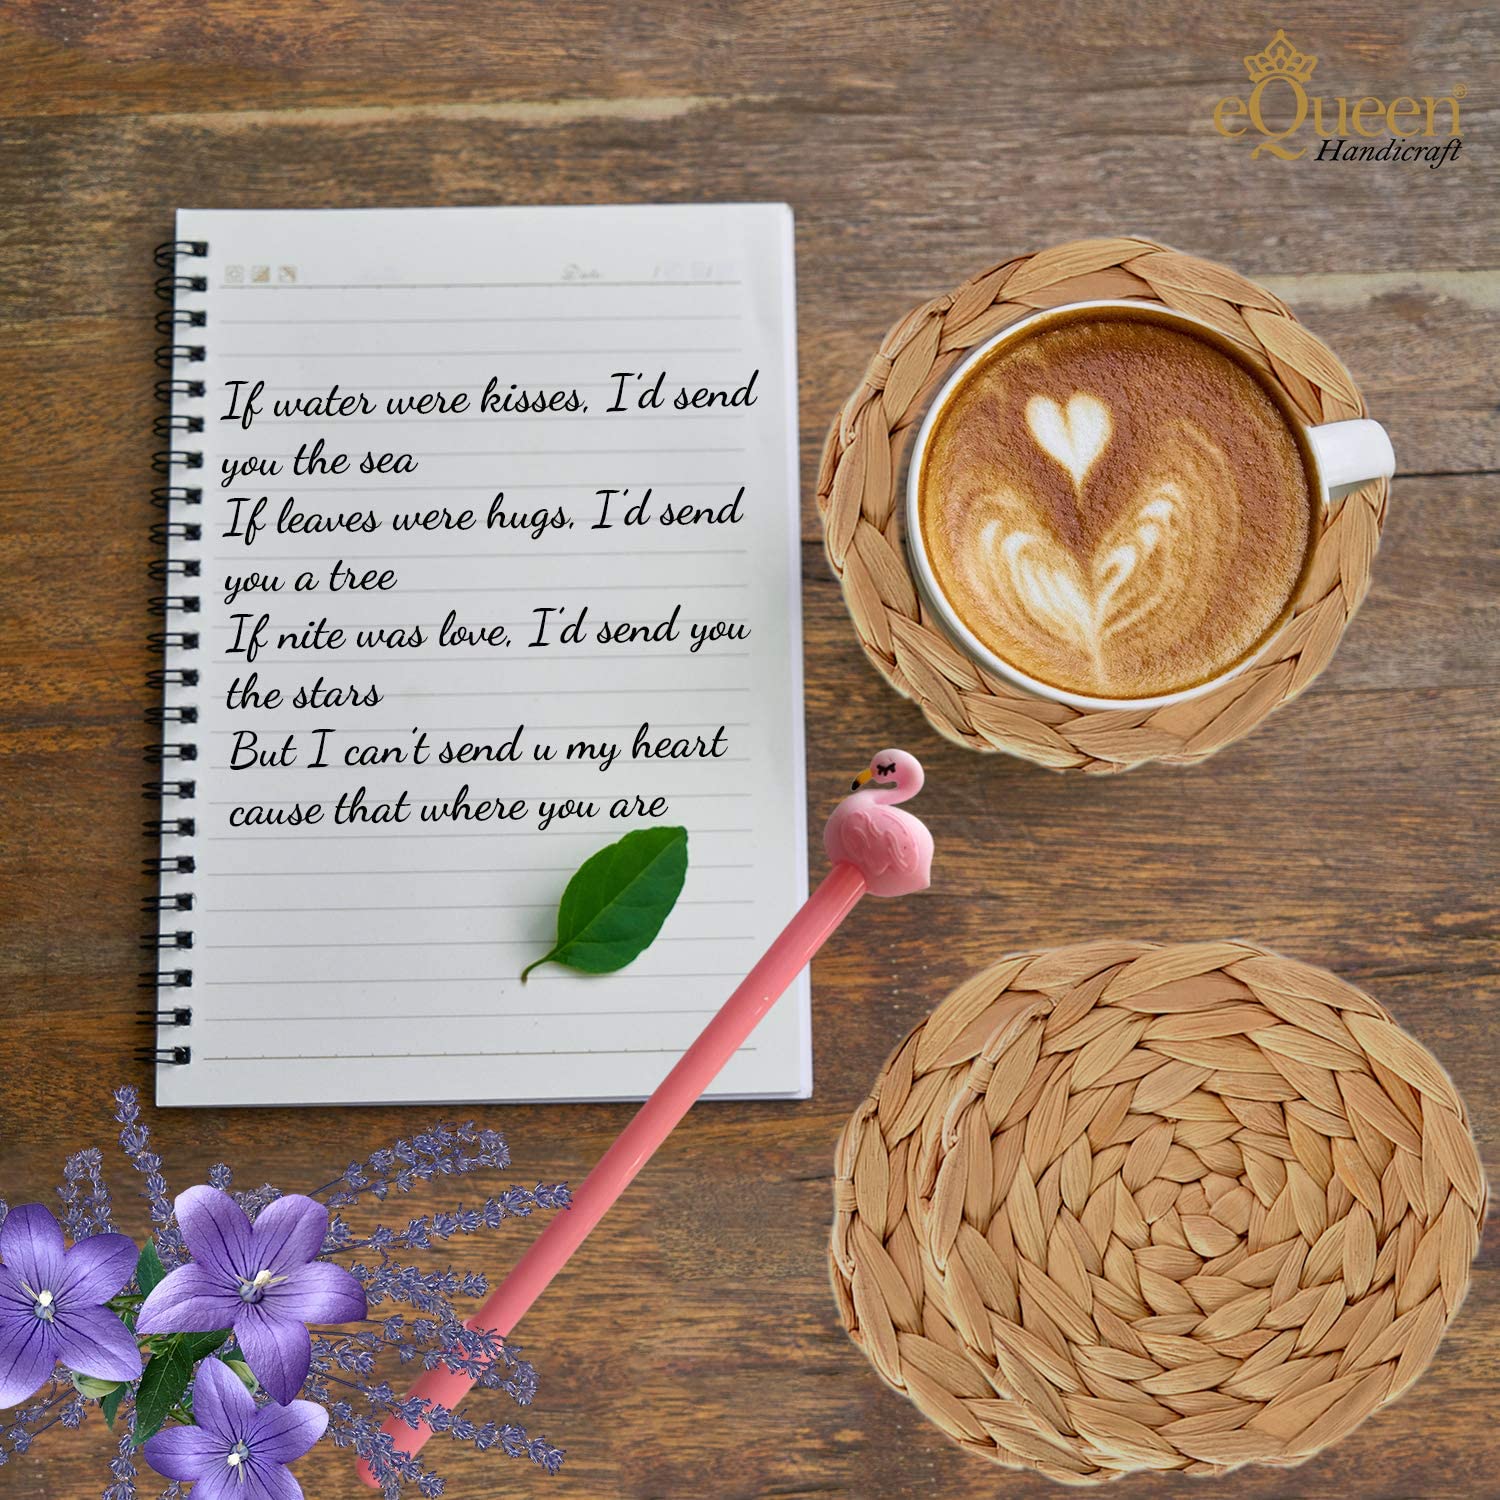 eQueen®
Handicraft
Date
If water were kisses, I'd send
you the sea
If leaves were hugs, I'd send
you a tree
If nite was love, I'd send you
the stars
But I can't send u my heart
cause that where you are